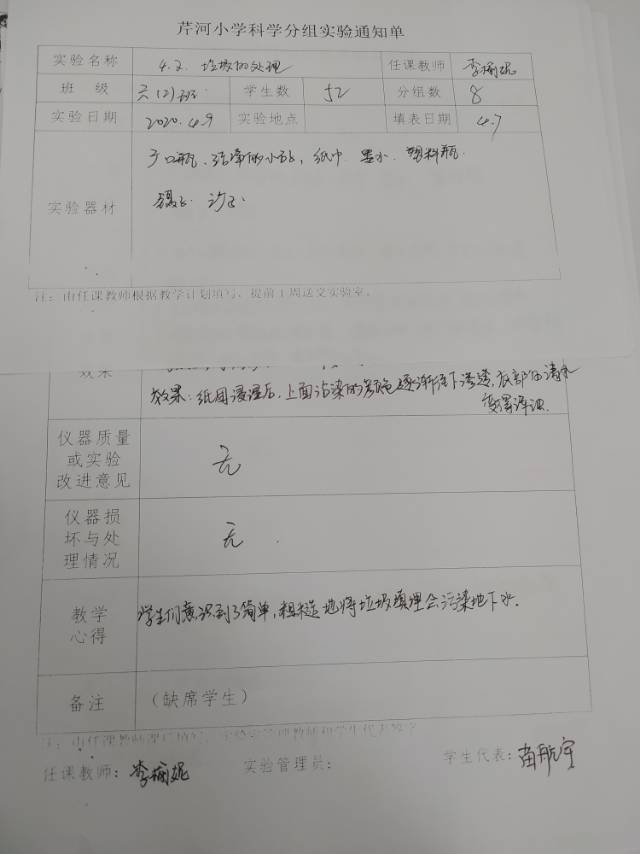 芹河小学科学分组实验通知单
实验名称 4.2. 垃圾的处理 任课教师 李
班 级 六(2)班 学生数 52 分组数 8
实验日期 2020.4.9 实验地点 填表日期 4.7
广口瓶、洁净的小石, 纸巾 墨水. 塑料瓶
实验器材
镊子. 沙子.
注：由任课教师根据教学计划填写，提前1周送交实验室。
效果
效果: 纸团浸湿后, 上面沾染的颜色逐渐往下渗透, 底部的清水
变
仪器质量
或实验
改进意见
无
仪器损
坏与处
理情况
无
教学
心得
学生们意识到了简单, 粗糙地将垃圾填埋会污染地下水.
备注 (缺席学生)
任课教师: 李 实验管理员: 学生代表: 苗航宇